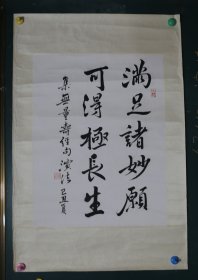 滿足諸妙願
可得極長生
集無量壽經句 演法 己丑夏